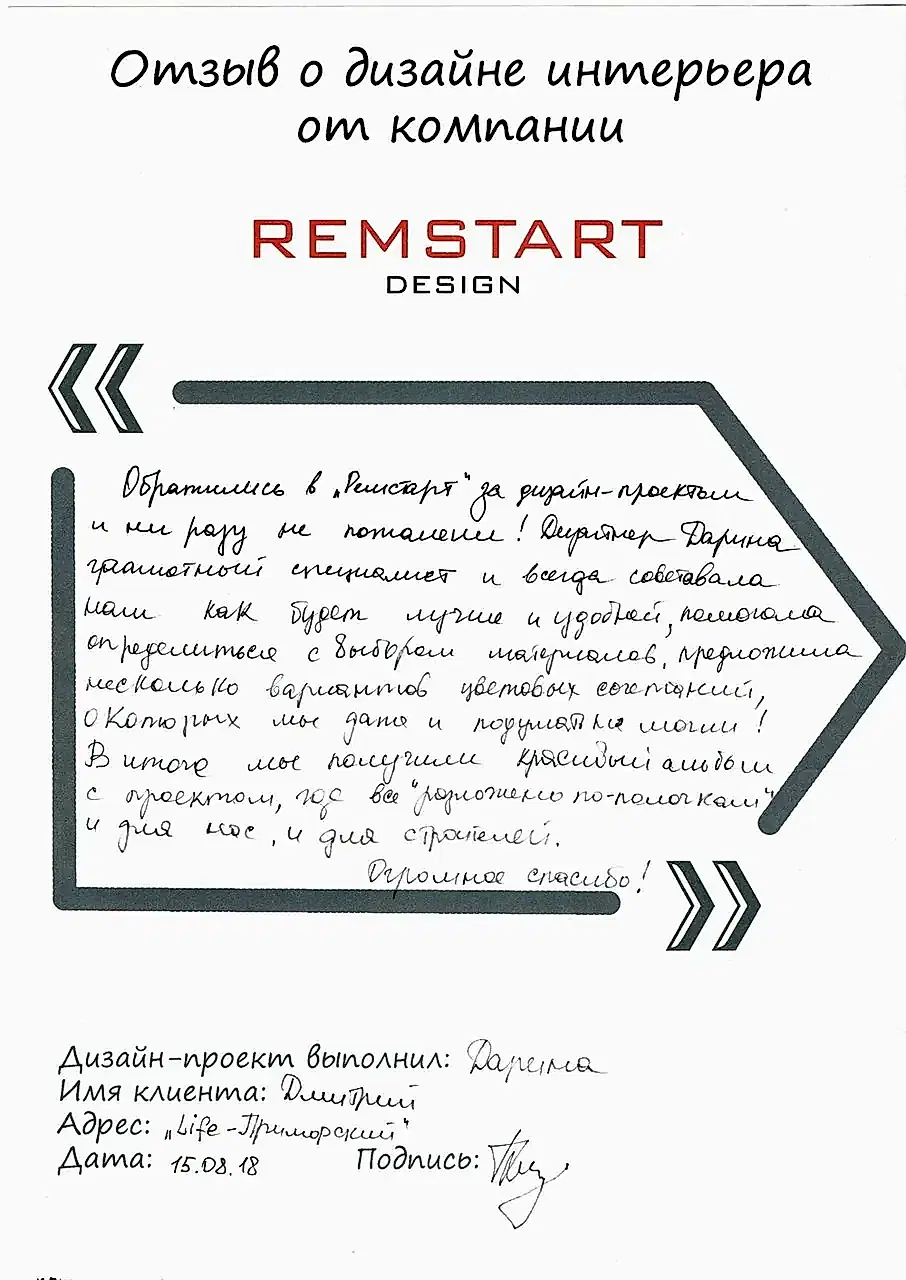 Отзыв о дизайне интерьера
от компании
REMSTART
DESIGN
Обратились в „Ремстарт" за дизайн-проектом
и ни разу не пожалели! Дизайнер Дарина
грамотный специалист и всегда советовала
нам как будет лучше и удобней, помогала
определиться с выбором материалов, предложила
несколько вариантов цветовых сочетаний,
о которых мы даже и подумать не могли!
В итоге мы получили красивый альбом
с проектом, где все "разложено по-полочкам"
и для нас, и для строителей.
Огромное спасибо!
Дизайн-проект выполнил: Дарина
Имя клиента: Дмитрий
Адрес: „Life-Приморский"
Дата: 15.08.18 Подпись: